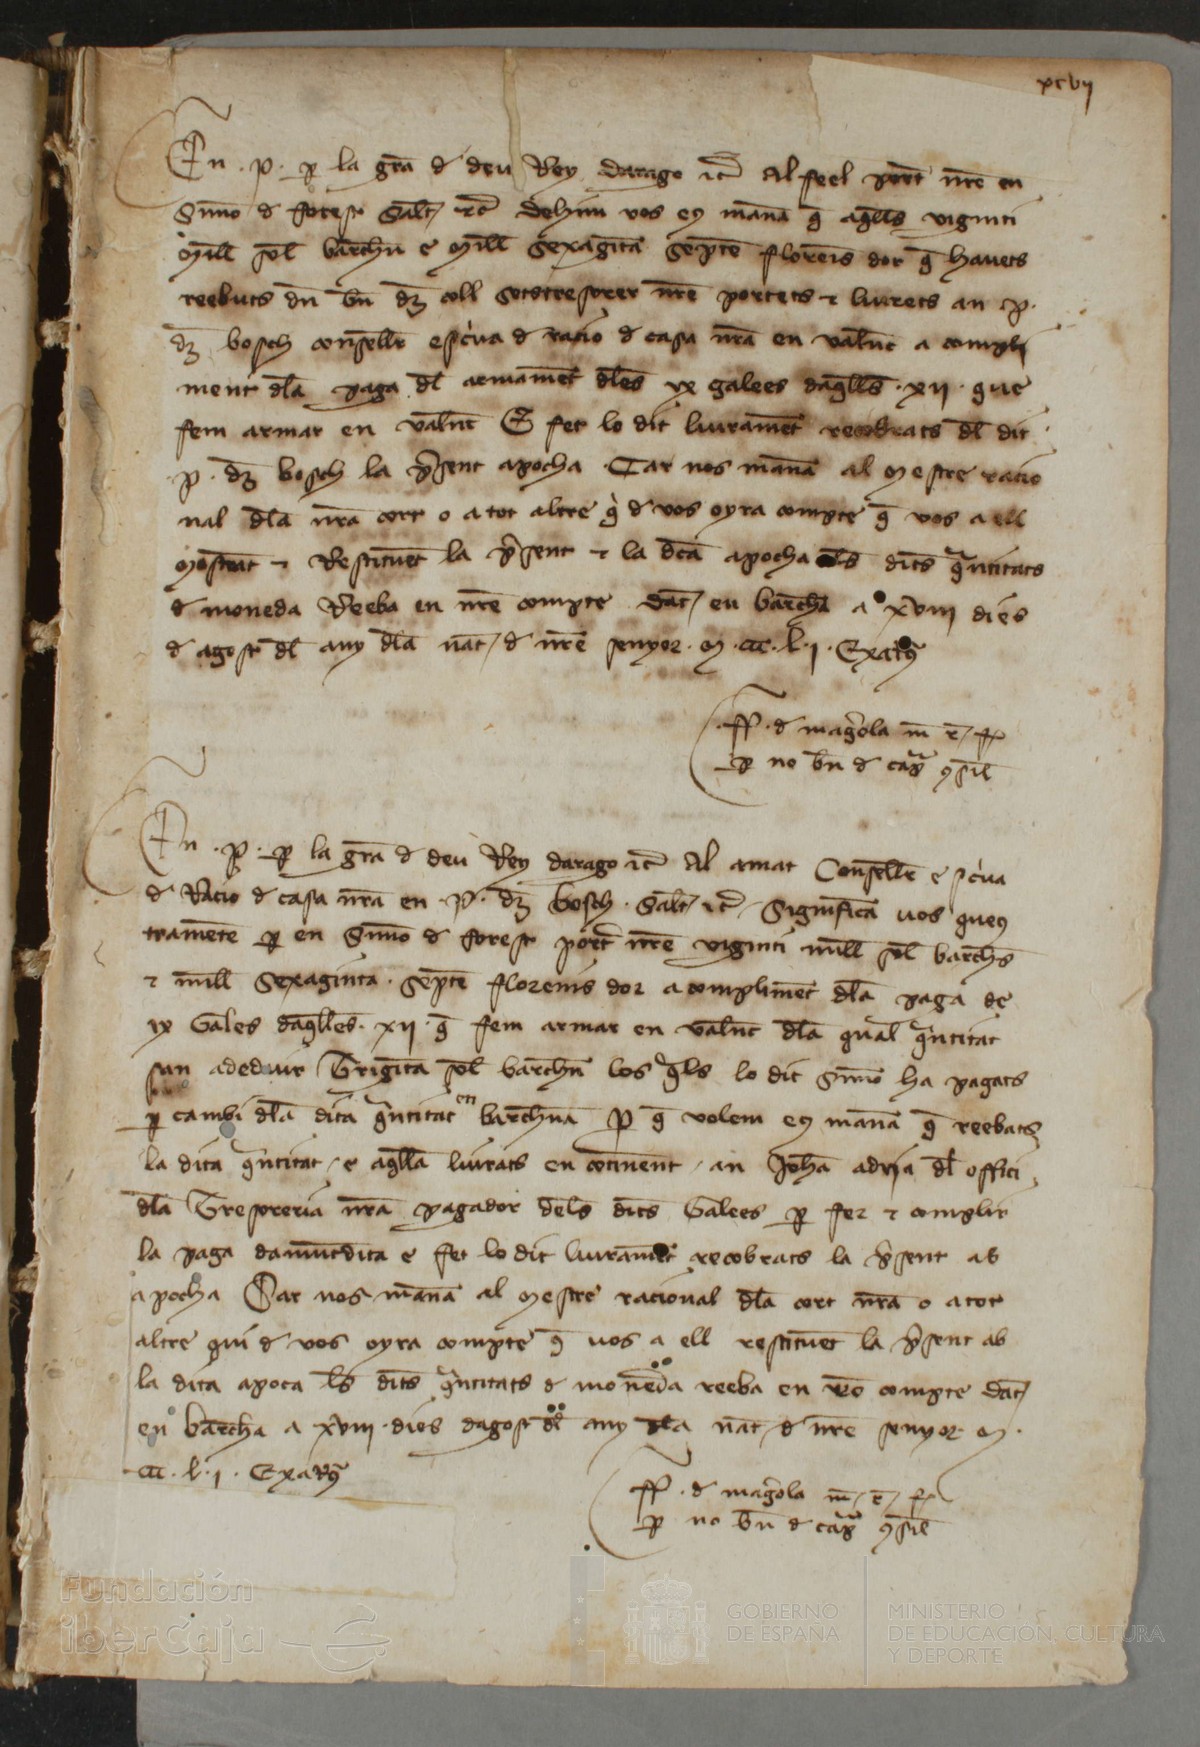 xcvij
En .P. p la gra d deu Rey darago etc Al feel port nre en
Simo d forest Salt etc Dehim vos eus mana q aqlls viginti
Mill sol barchn e Mill sexaginta septe florens dor q havets
reebuts dn bn dz coll sotstresorer nre portets e liurets an P.
dz bosch conseller escriva d racio d casa nra en Valnc a compli
ment dla paga dl armamet dles ix galees daqlls .xij. que
fem armar en Valnc E fet lo dit liuramet recobrats dl dit
.P. dz bosch la psent apocha Car nos mana al Mestre racio
nal dla nra cort o a tot altre qi d vos oyra compte q vos a ell
mostrat e Restituet la psent e la dca apocha les dits qntitats
d moneda Reeba en nre compte Dat en barchna a xviii dies
d agost dl any dla nat d nre senyor M ccc l i Exatus
ff d magrola m r p
p no bn d capr consil
En .P. p la gra d deu Rey darago etc Al amat Conseller e scriva
d Racio d casa nra en .P. dz bosch Salt etc Significa vos queus
trametē p en Simo d forest port nre viginti mill sol barchns
e mill sexaginta septe florenis dor a compliment dla paga de
ix Galees daqlles xij q fem armar en Valnc dla qual qntitat
sun adeduir Triginta sol barchn los qls lo dit simo ha pagats
p cambi dla dita qntitat en barchna P q volem eus mana q reebats
la dita qntitat e aqlla liurats en continent an Joha adria dl offici
dla Tresoreria nra pagador dels dits Galees p fer e complir
la paga damuntdita e fet lo dit liuramet recobrats la psent ab
apocha Car nos mana al Mestre racional dla cort nra o a tot
altre qui d vos oyra compte q vos a ell restituet la psent ab
la dita apoca les dits qntitats d moneda reeba en nre compte Dat
en barchna a xviii dies dagost dl any dla nat d nre senyor M
ccc l i Exatus
ff d magrola m r p
p no bn d capr consil
fundación
iberCaja
GOBIERNO
DE ESPAÑA
MINISTERIO
DE EDUCACIÓN, CULTURA
Y DEPORTE